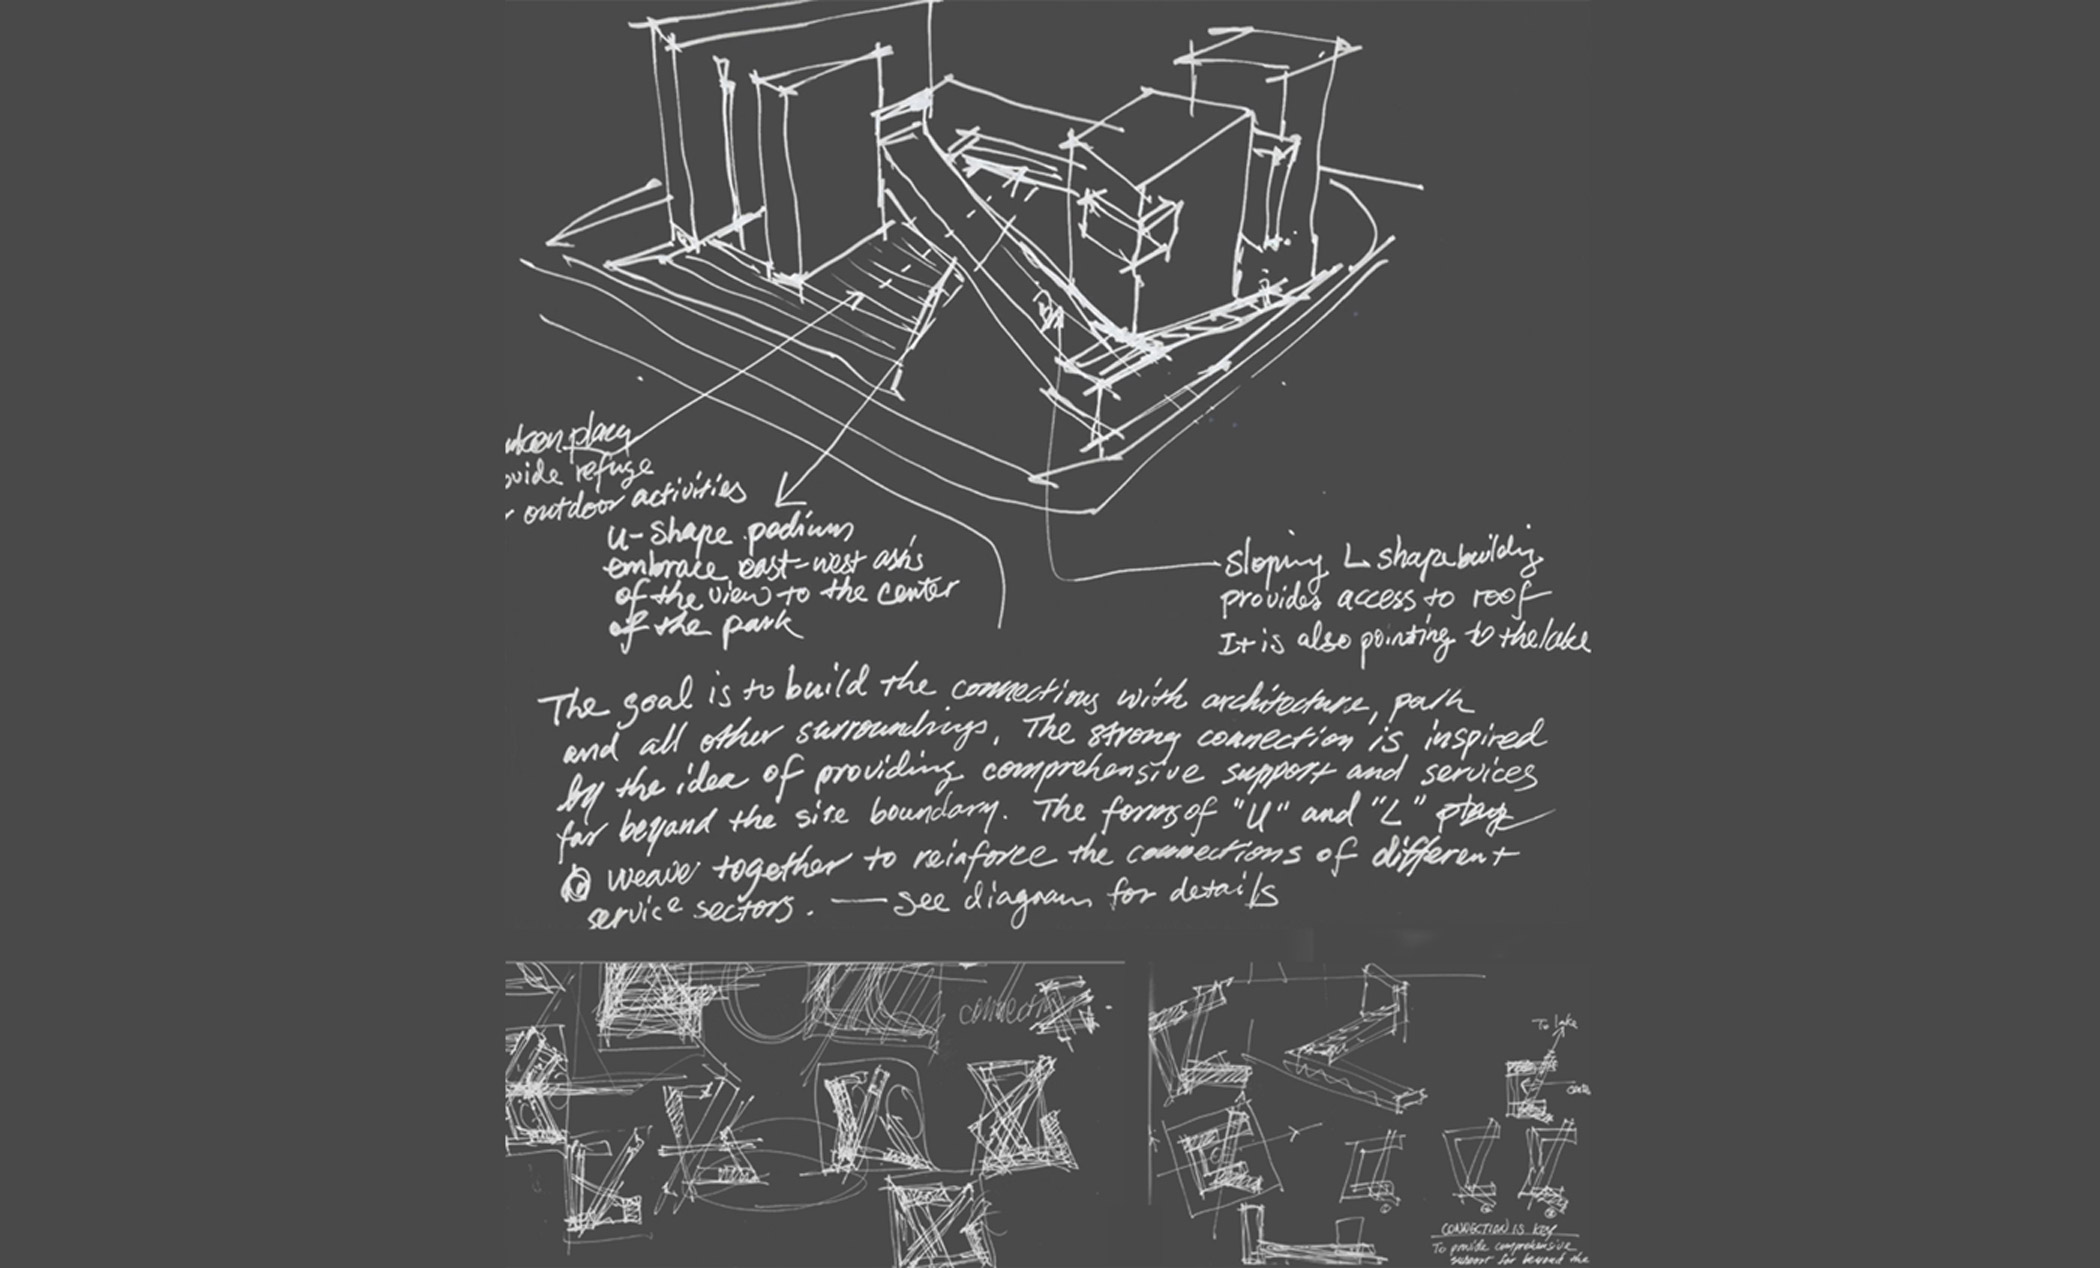 plaza
refuge
outdoor activities
U-Shape podium
embrace east-west axis
of the view to the center
of the park
Sloping L shape building
provides access to roof
It is also pointing to the lake
The goal is to build the connections with architecture, park
and all other surroundings. The strong connection is inspired
by the idea of providing comprehensive support and services
far beyond the site boundary. The forms of "U" and "L"
weave together to reinforce the connections of different
service sectors. — see diagram for details
connection
To lake
CONNECTION IS KEY
To provide comprehensive
support far beyond the